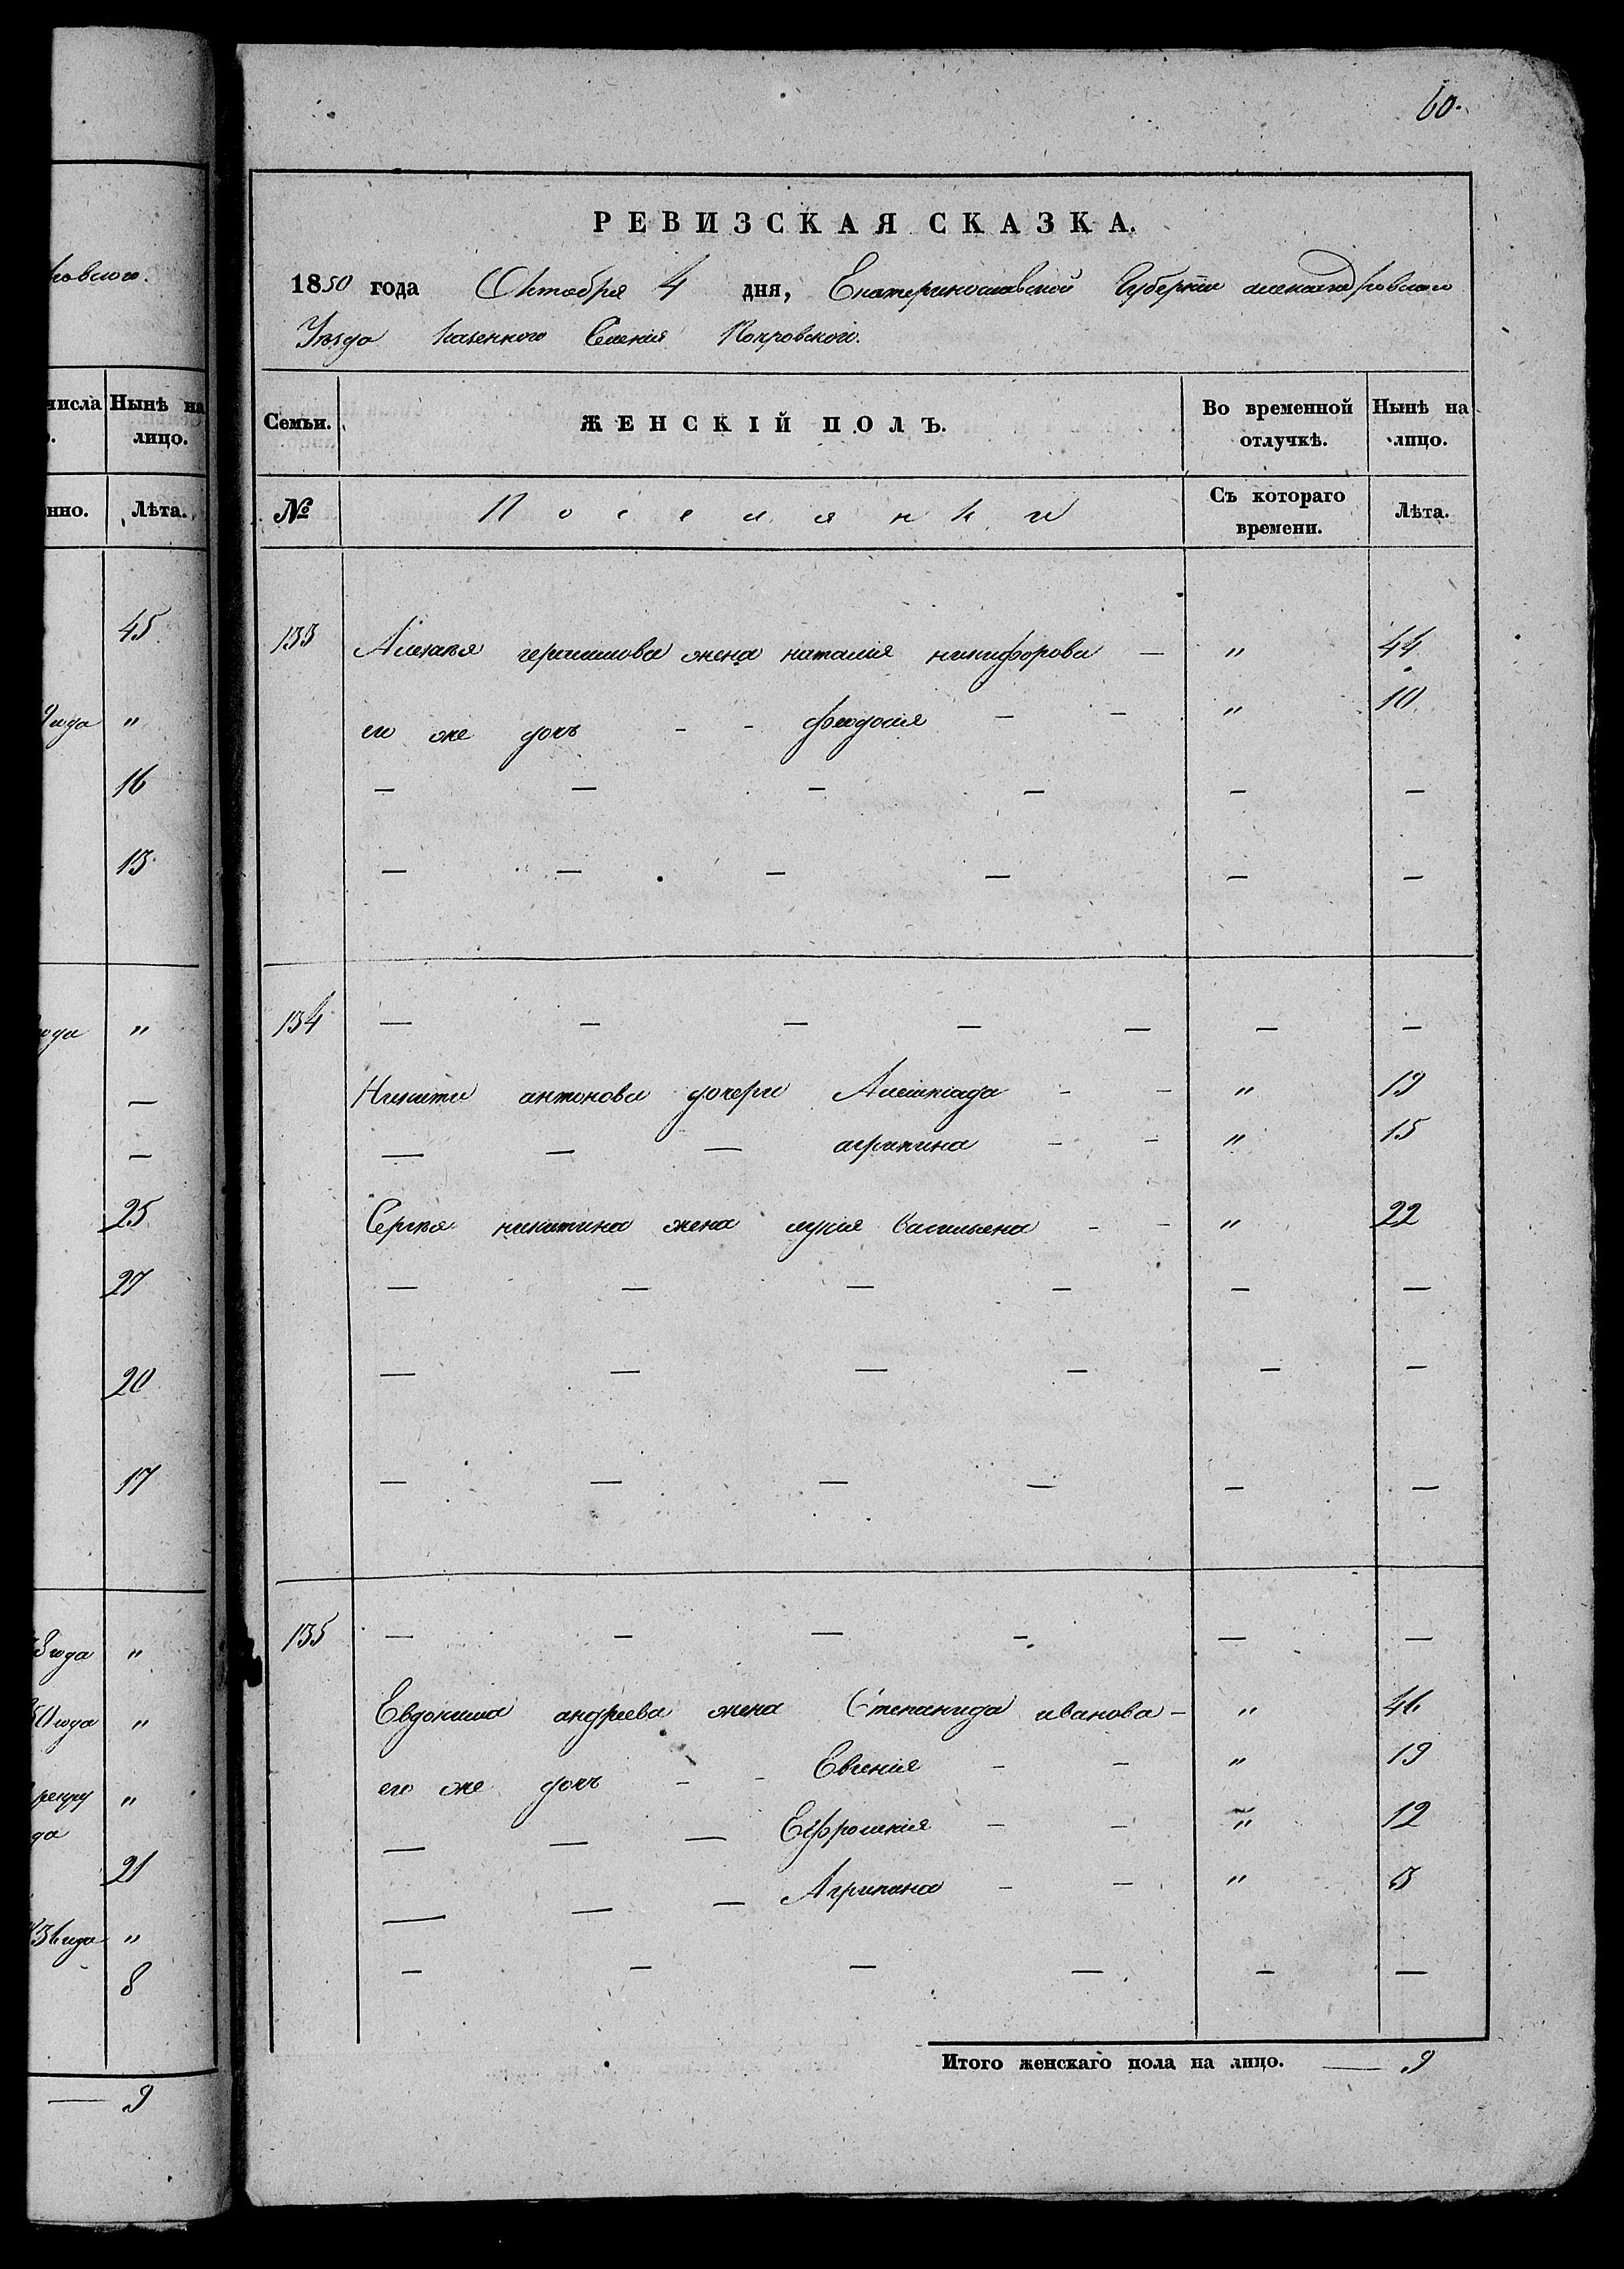 60.
РЕВИЗСКАЯ СКАЗКА.
1850 года Октября 4 дня, Екатеринославской Губерніи александровского
Уѣзда казенного Селенія Покровского.
Семьи. ЖЕНСКІЙ ПОЛЪ. Во временной отлучкѣ. Нынѣ на лицо.
№ Поселянки Съ котораго времени. Лѣта.
133 Алексѣя герасимова жена наталія никифорова — " 44
его же дочь - - феодосія — — " 10
— — — — — —
— — — — — —
134 — — — — — — —
Никиты антонова дочери - - " 19
— — — агрипина - - " 15
Сергѣя никитина жена лукія васильева - - " 22
— — — — — —
— — — — — —
— — — — — —
135 — — — — — —
Евдокима андреева жена Степанида иванова — " 46
его же дочь - - Евгенія - — " 19
— — — Ефросинія - - " 12
— — — Агрипина - — " 3
— — — — — —
Итого женскаго пола на лицо. — 9
ровского.
числа Нынѣ на лицо.
нно. Лѣта.
45
года "
16
13
года "
—
—
25
27
20
17
8 года "
50 года "
рекру "
да
21
36 года "
8
— 9